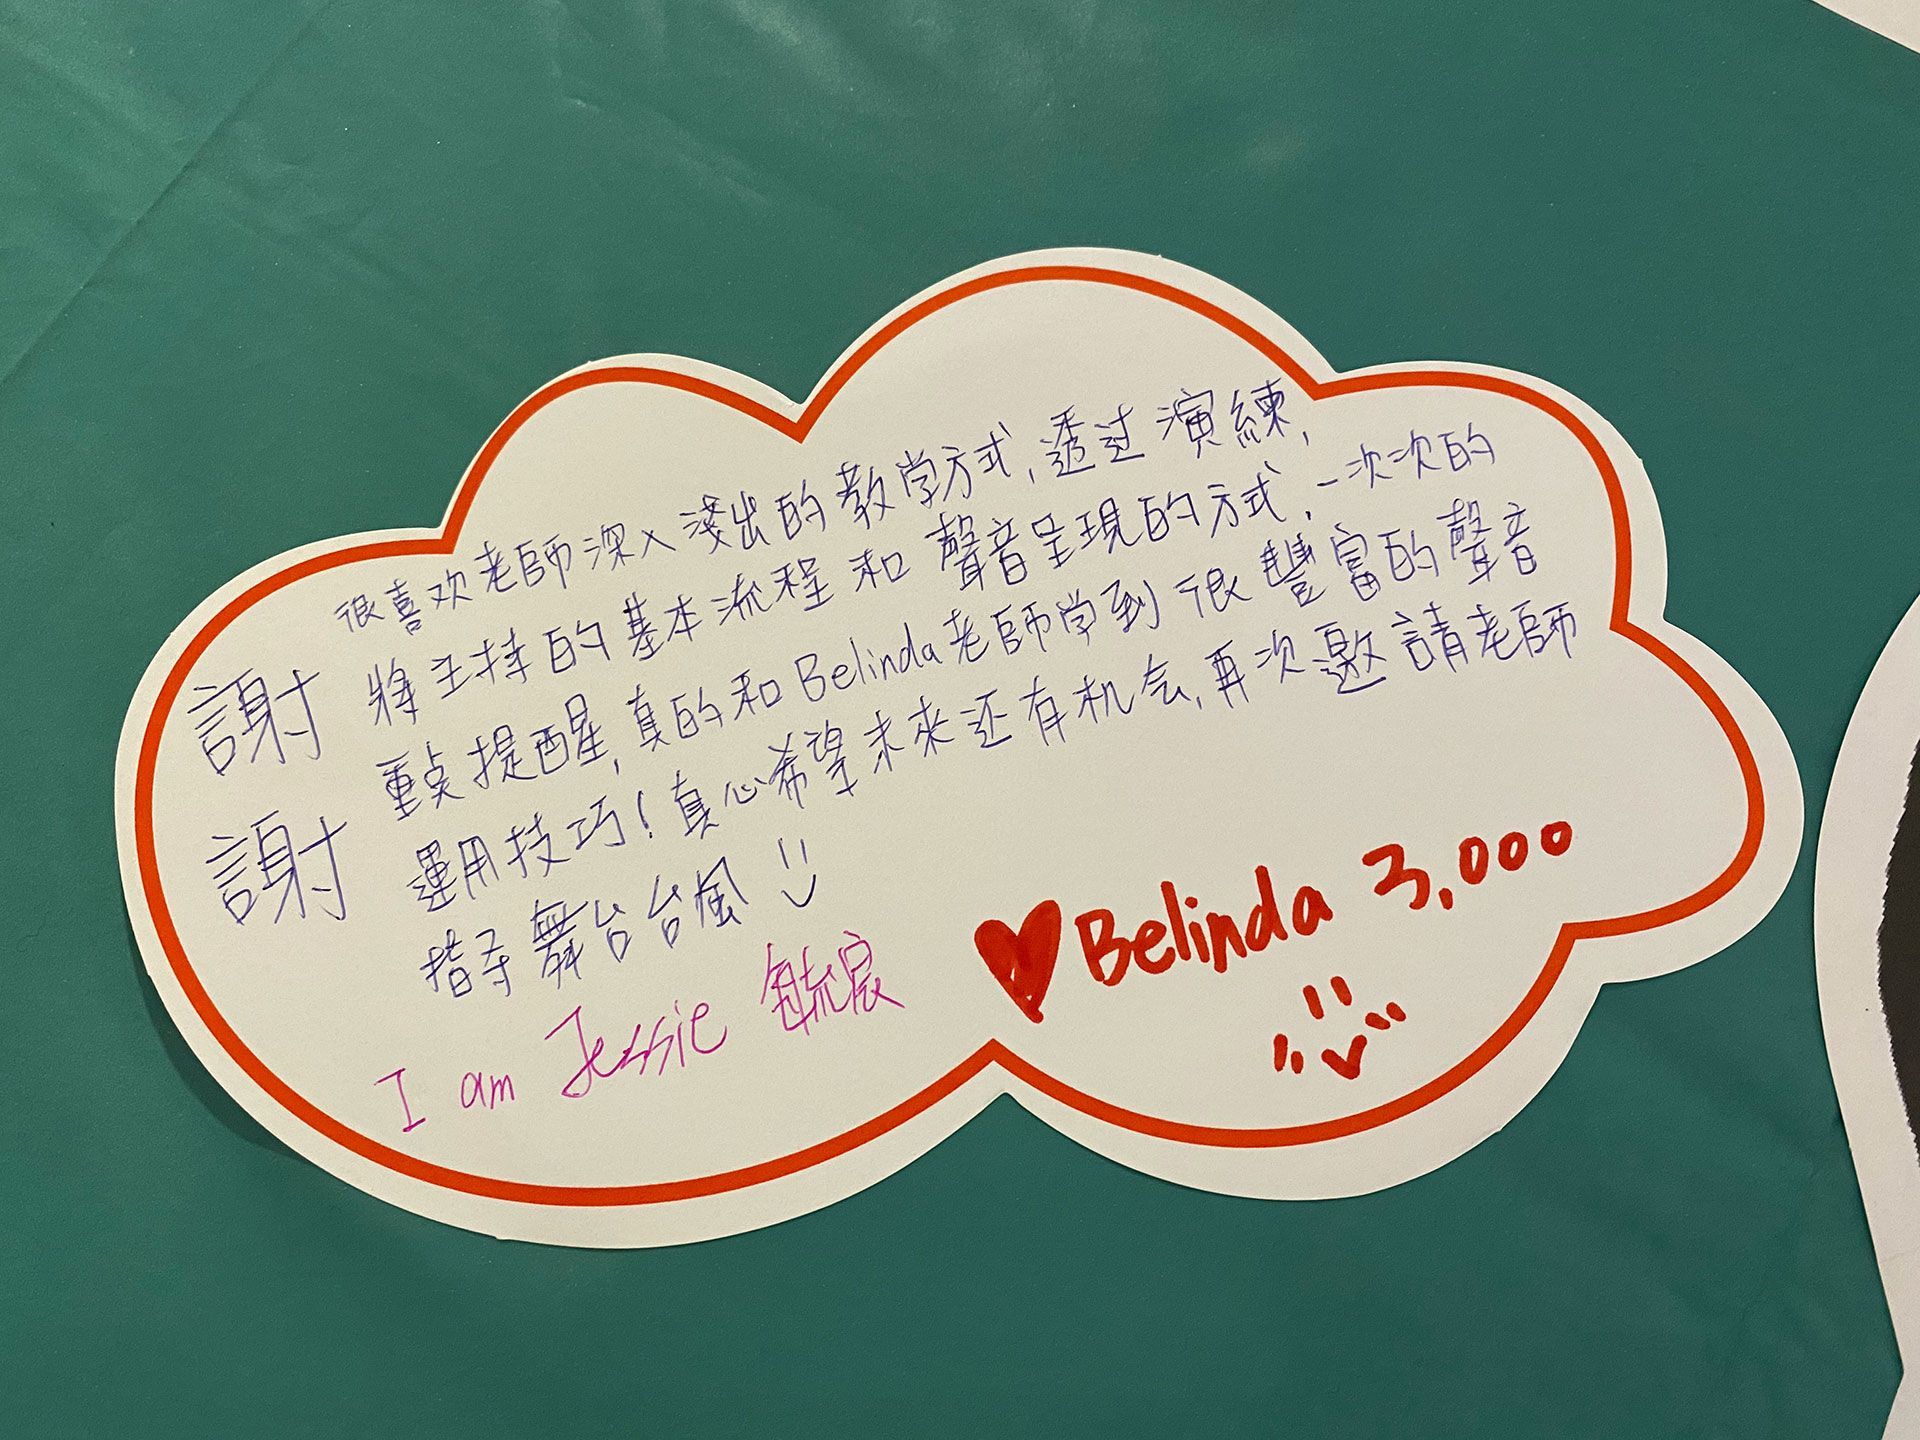 很喜欢老師深入淺出的教学方式,透过演練,
將主持的基本流程和聲音呈現的方式,一次次的
重点提醒,真的和Belinda老師学到很豐富的聲音
運用技巧!真心希望未來还有机会,再次邀請老師
指导舞台台風
謝
謝
I am Jessie 毓宸
♥Belinda 3,000